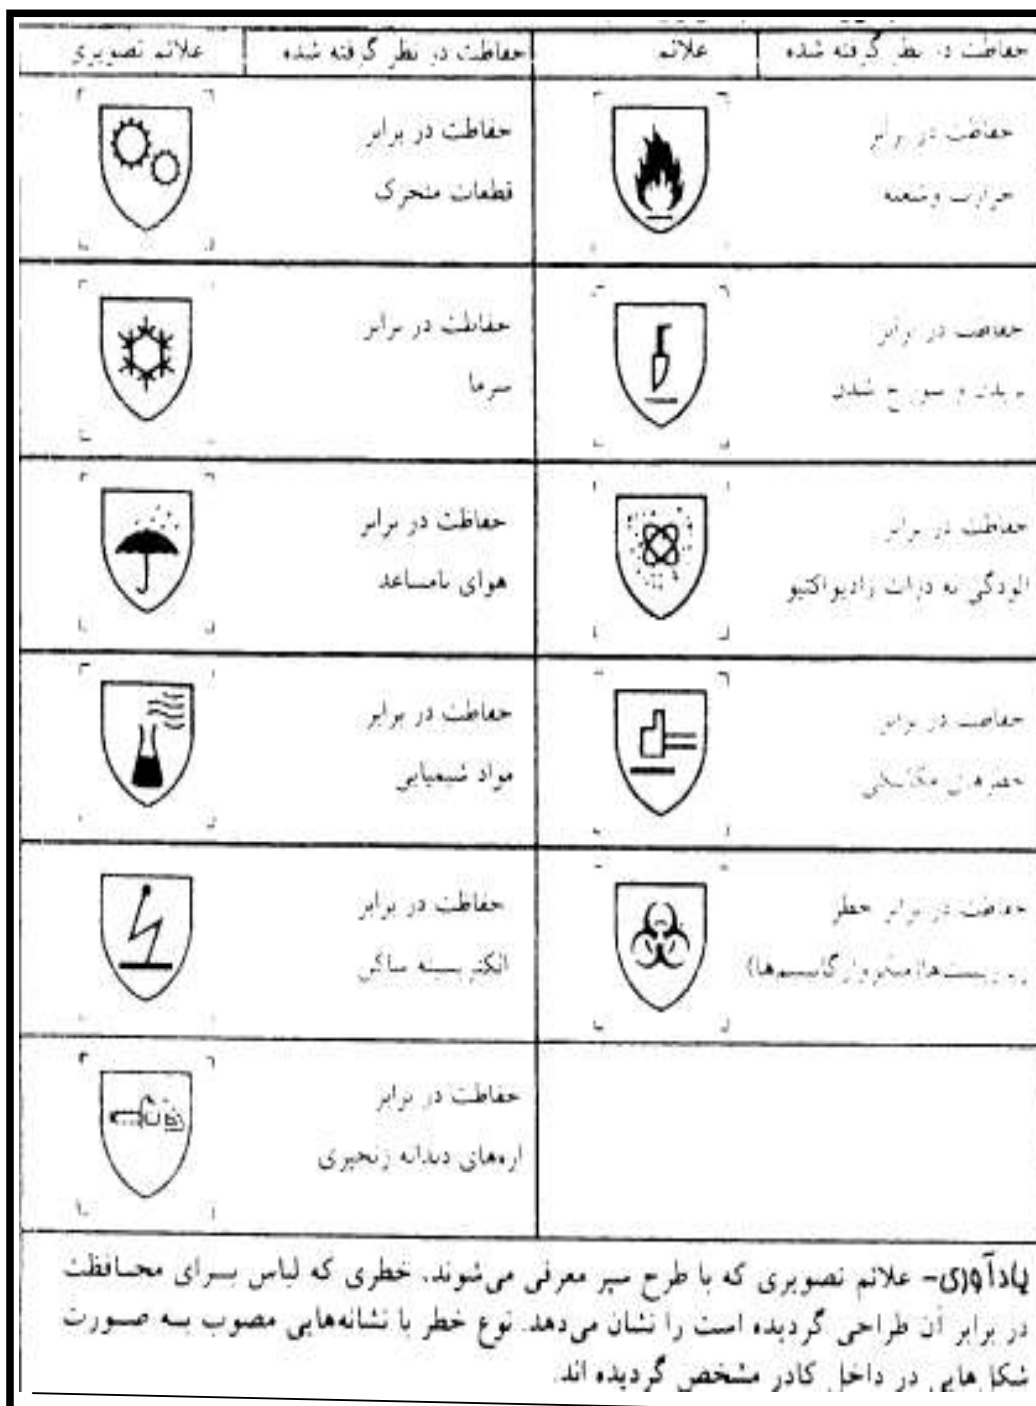 حفاظت در نظر گرفته شده
علائم
حفاظت در نظر گرفته شده
علائم تصویری
حفاظت در برابر
حرارت و شعله
حفاظت در برابر
قطعات متحرک
حفاظت در برابر
بریدن و سوراخ شدن
حفاظت در برابر
سرما
حفاظت در برابر
آلودگی به ذرات رادیواکتیو
حفاظت در برابر
هوای نامساعد
حفاظت در برابر
خطرهای مکانیکی
حفاظت در برابر
مواد شیمیایی
حفاظت در برابر خطر
حفاظت در برابر
الکتریسیته ساکن
حفاظت در برابر
اره‌های دندانه زنجیری
یادآوری- علائم تصویری که با طرح سپر معرفی می‌شوند. خطری که لباس بسرای محسافظت
در برابر آن طراحی گردیده است را نشان می‌دهد. نوع خطر با نشانه‌هایی مصوب به صورت
شکل هایی در داخل کادر مشخص گردیده اند.